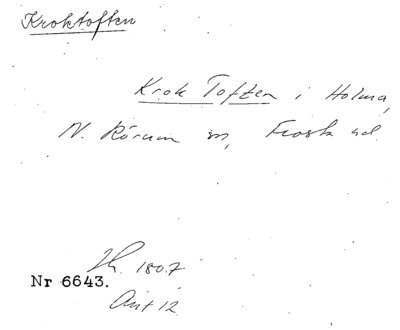 Kroktoften
Krok Toften i Holma,
N. Rörum sn, Frosta hd.
Nr 6643.
1807
Ant 12